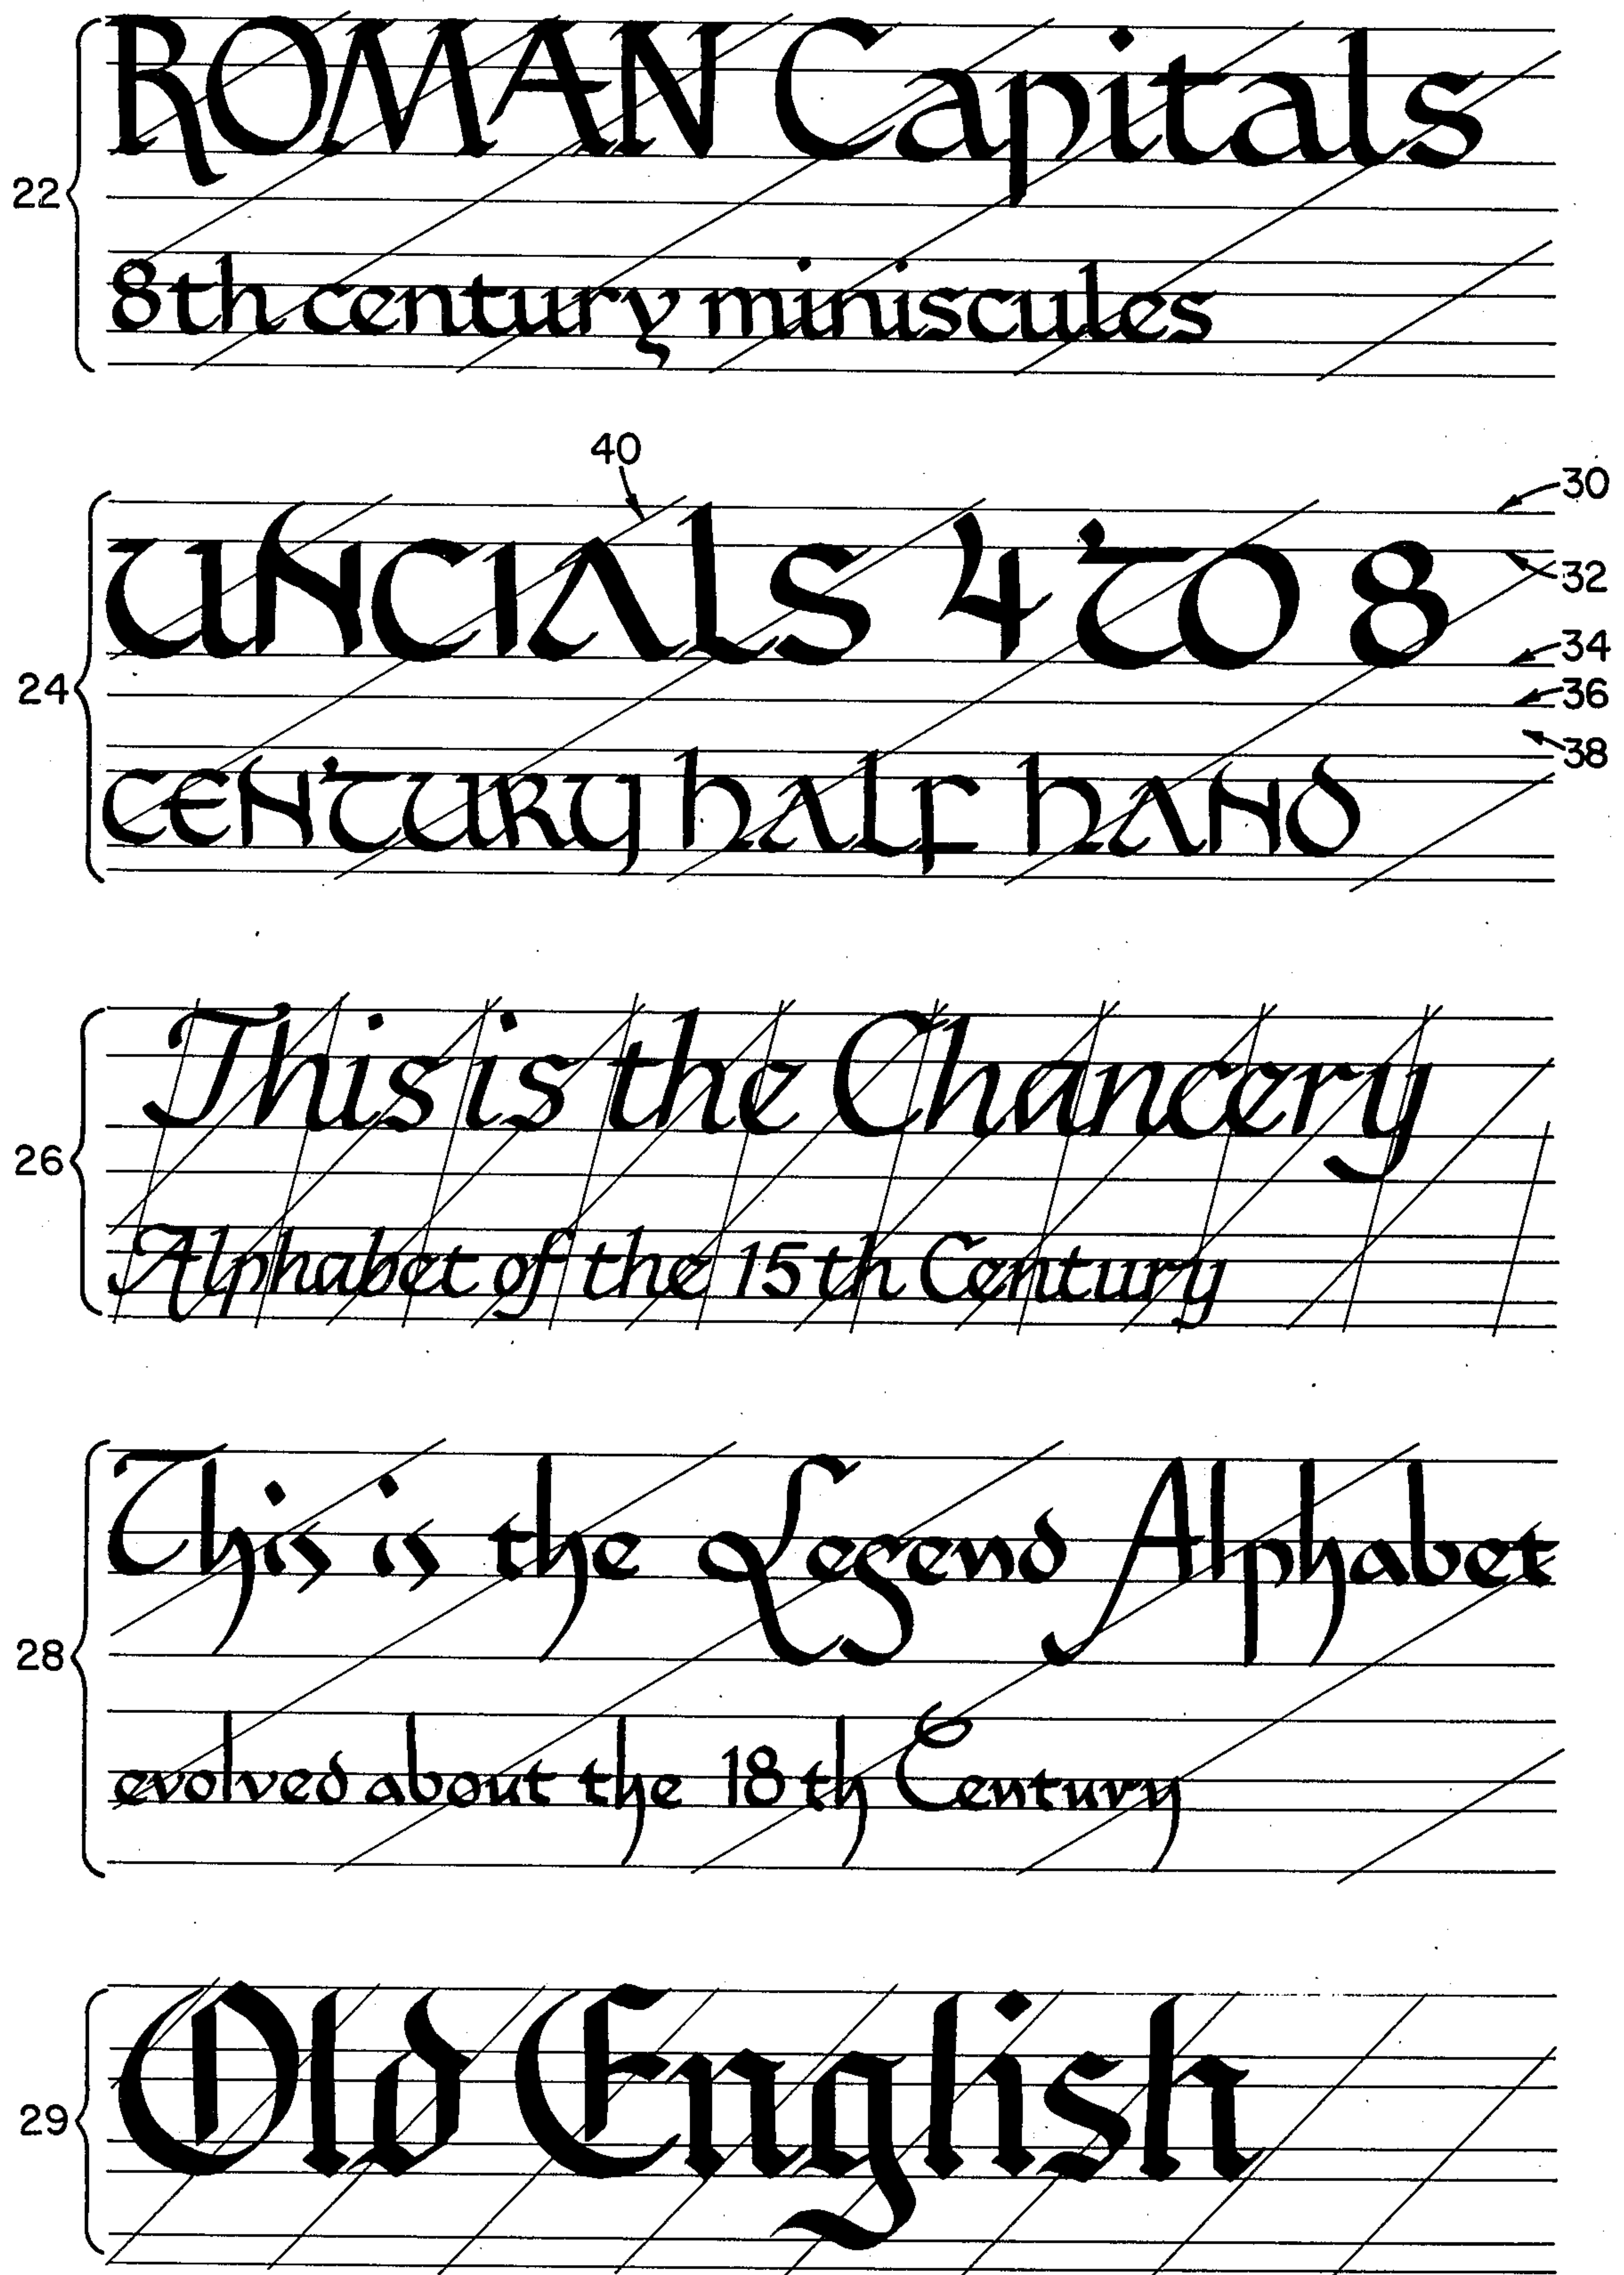 ROMAN Capitals
22
8th century miniscules
40
30
UNCIALS 4 TO 8
32
34
24
36
38
CENTURY hALF hAND
This is the Chancery
26
Alphabet of the 15th Century
This is the Legend Alphabet
28
evolved about the 18th Century
Old English
29